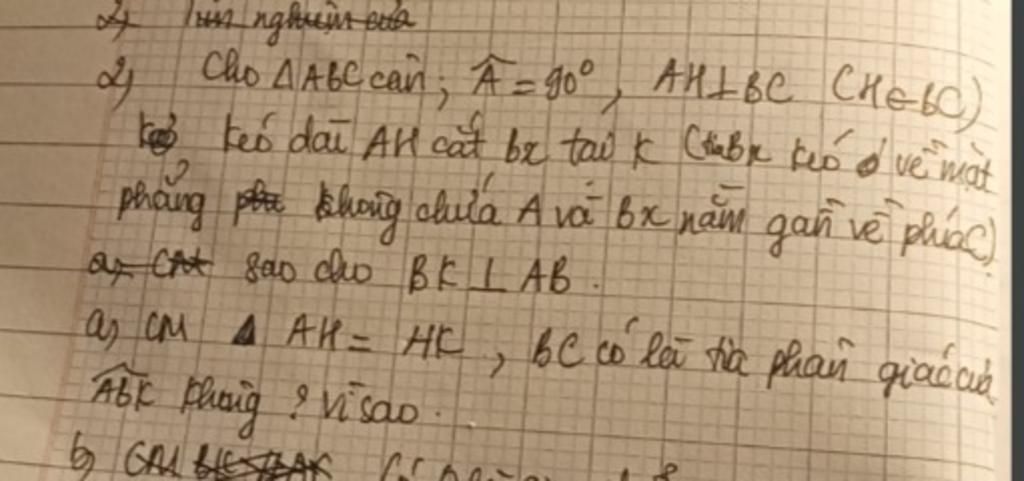 2)
2) Cho ΔABC cân; Â = 90°, AH⊥BC (H∈BC)
kéo dài AH cắt bx tại K (tia Bx kéo về mặt
phẳng không chứa A và Bx nằm gần về phía C)
sao cho BK ⊥ AB.
a) CM AH = HK, BC có là tia phân giác của
ABK không? Vì sao.
b) CM